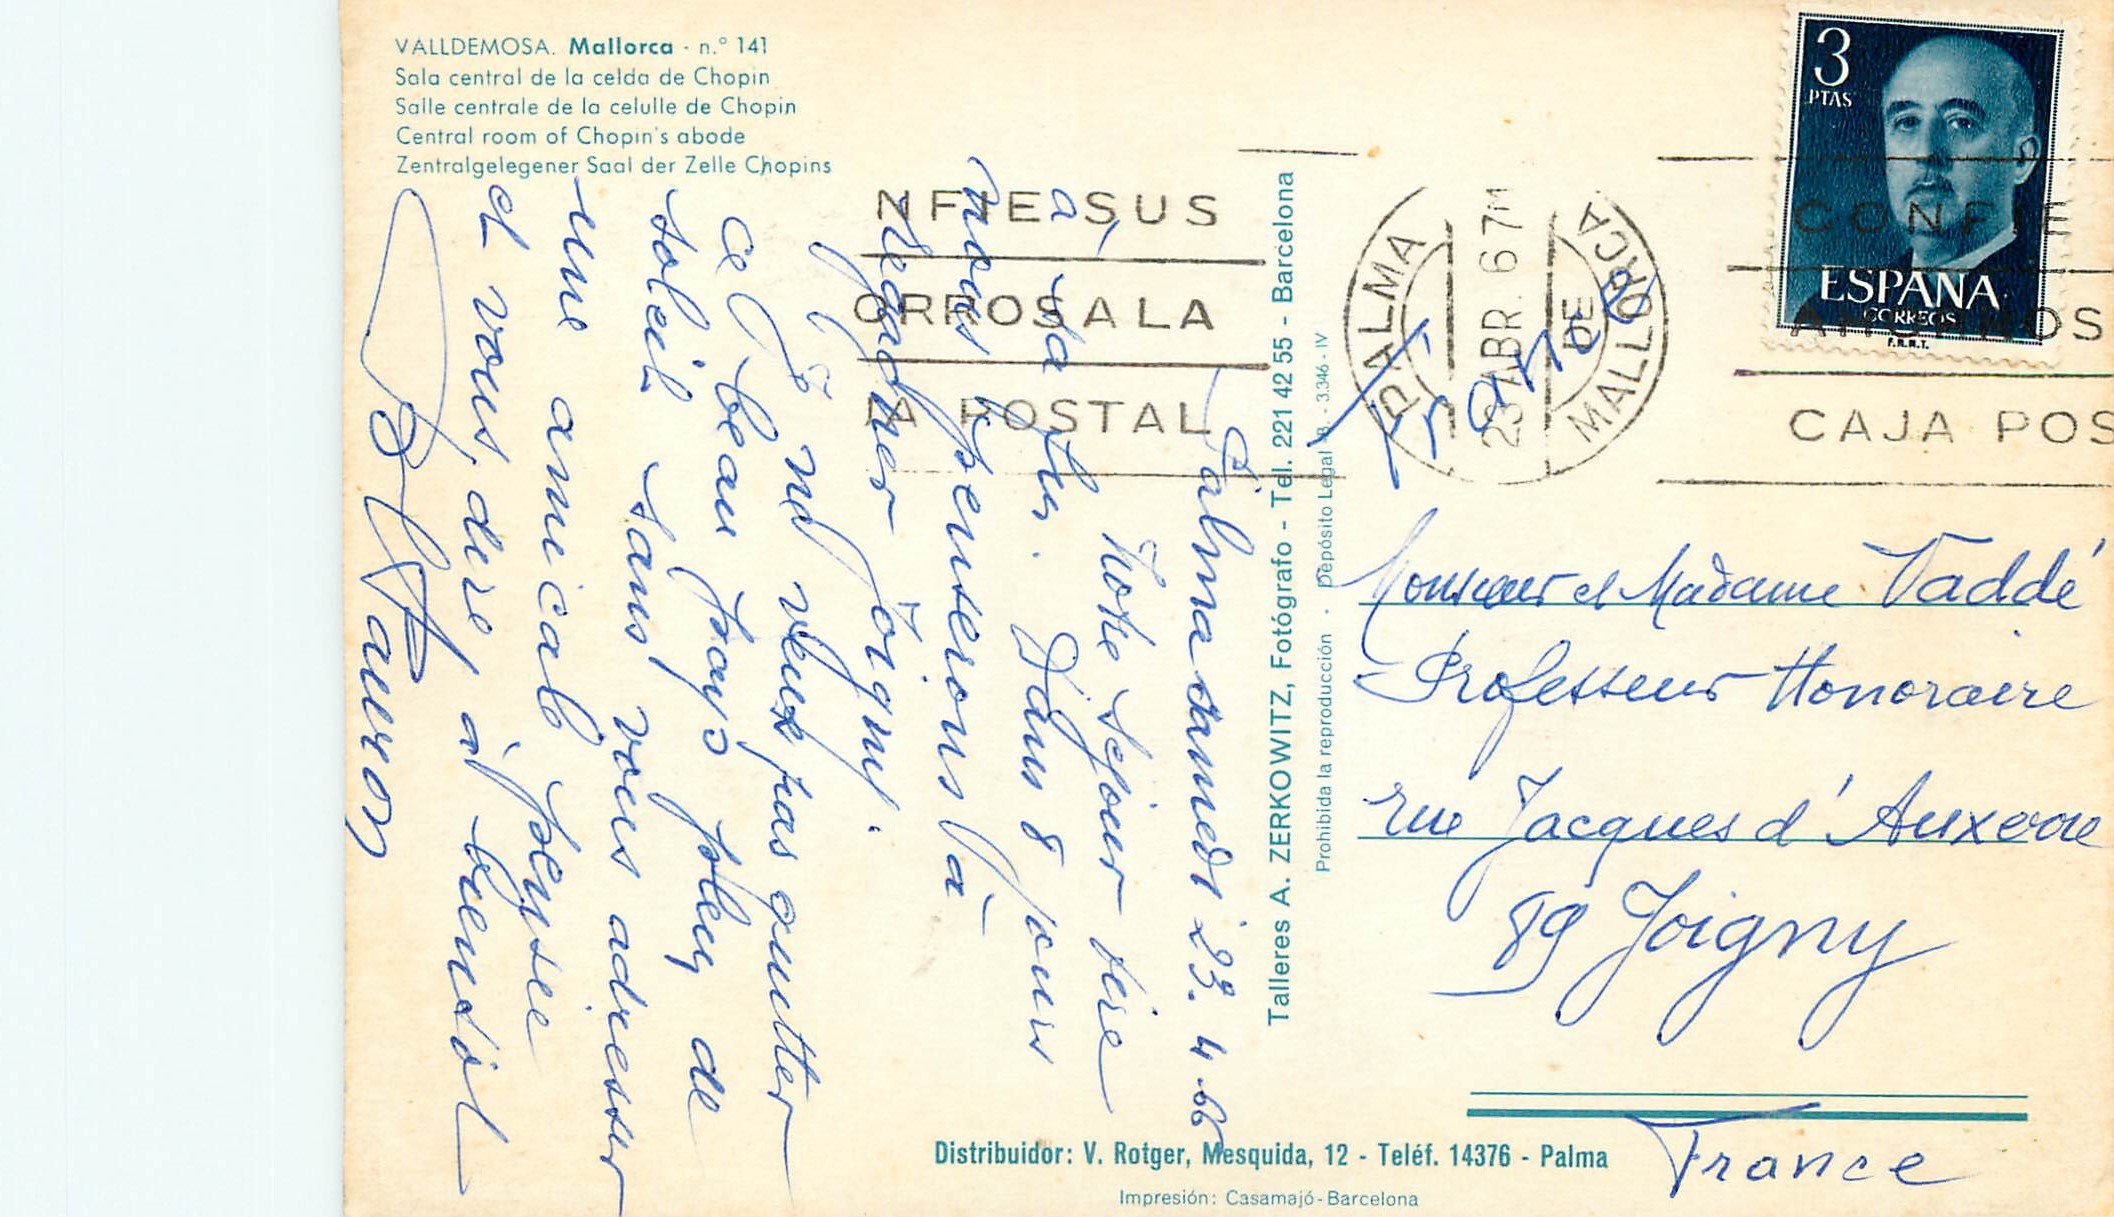 VALLDEMOSA. Mallorca - n.º 141
Sala central de la celda de Chopin
Salle centrale de la celulle de Chopin
Central room of Chopin's abode
Zentralgelegener Saal der Zelle Chopins
Palma samedi 23. 4. 66
Notre séjour tire
à sa fin. Dans 8 jours
nous penserons à
regagner Joigny.
Je ne veux pas quitter
ce beau pays plein de
soleil sans vous adresser
une amicale pensée
et vous dire à bientôt
Talleres A. ZERKOWITZ, Fotógrafo - Tel. 221 42 55 - Barcelona
Prohibida la reproducción - Depósito Legal B. - 3.346 - IV
3
PTAS
ESPAÑA
CORREOS
F.N.M.T.
NFIE SUS
ORROS A LA
JA POSTAL
PALMA DE MALLORCA
23 ABR. 67M
CONFIE
AHORROS
CAJA POS
Monsieur et Madame Vaddé
Professeur Honoraire
rue Jacques d'Auxerre
89 Joigny
France
Distribuidor: V. Rotger, Mesquida, 12 - Teléf. 14376 - Palma
Impresión: Casamajó-Barcelona